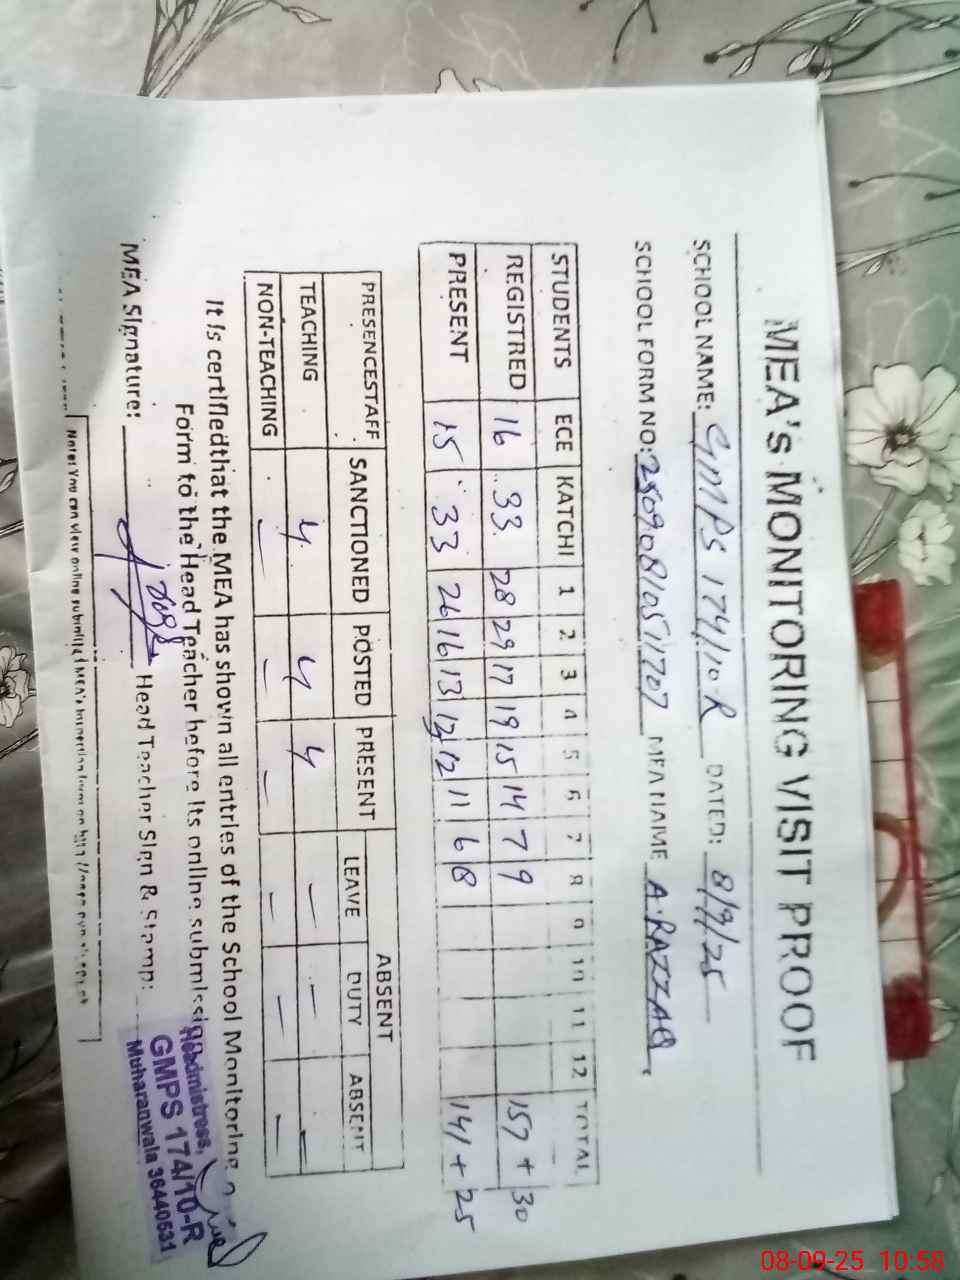 MEA's MONITORING VISIT PROOF
SCHOOL NAME: GMPS 174/10-R DATED: 8/9/25
SCHOOL FORM NO: 25090810511707 MEA NAME A.RAZZAQ
STUDENTS ECE KATCHI 1 2 3 4 5 6 7 8 9 10 11 12 TOTAL
REGISTRED 16 33 28 29 17 19 15 14 7 9 157 + 30
PRESENT 15 33 26 16 13 12 12 11 6 8 141 + 25
PRESENCESTAFF SANCTIONED POSTED PRESENT ABSENT
LEAVE DUTY ABSENT
TEACHING 4 4 4 — — —
NON-TEACHING — — — — — —
It is certifiedthat the MEA has shown all entries of the School Monitoring
Form to the Head Teacher before its online submission.
MEA Signature: Head Teacher Sign & Stamp:
Headmistress,
GMPS 174/10-R
Muharanwala 36440531
Note: You can view online submitted MEA's
08-09-25 10:58